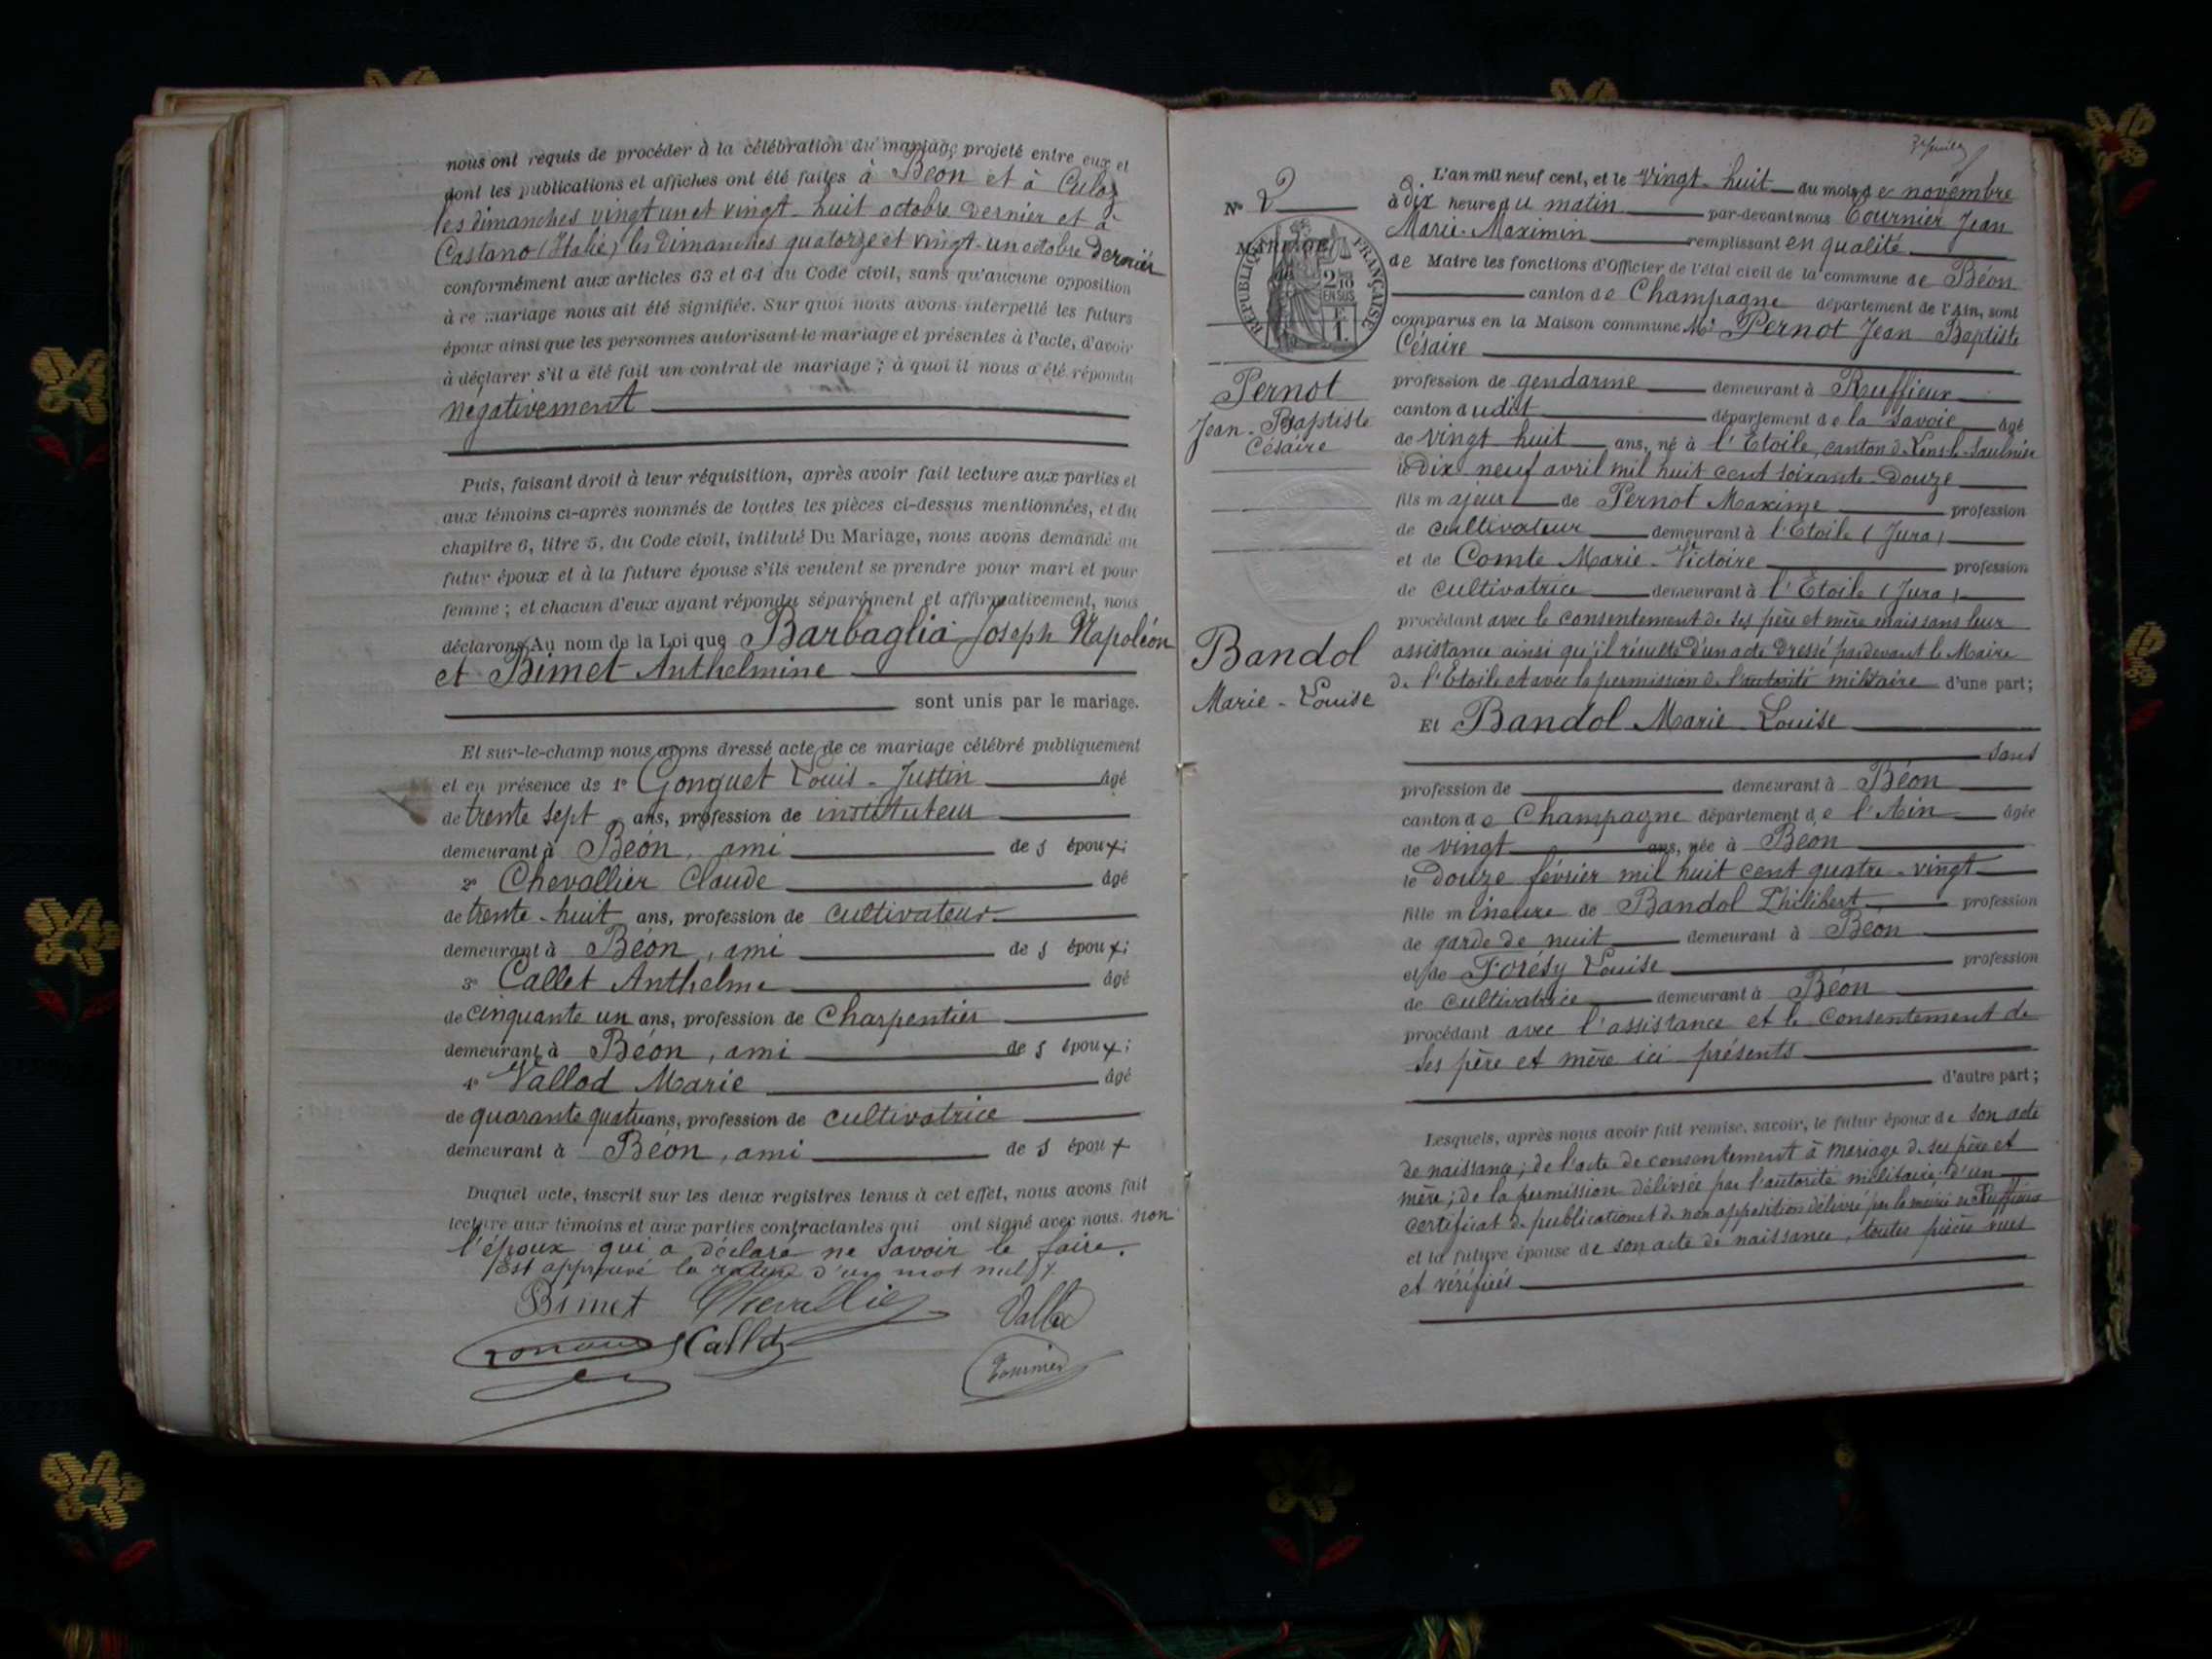 nous ont requis de procéder à la célébration du mariage projeté entre eux et
dont les publications et affiches ont été faites à Béon et à Culoz
les dimanches vingt un et vingt-huit octobre dernier et à
Castano (Italie) les dimanches quatorze et vingt-un octobre dernier
conformément aux articles 63 et 64 du Code civil, sans qu'aucune opposition
à ce mariage nous ait été signifiée. Sur quoi nous avons interpellé les futurs
époux ainsi que les personnes autorisant le mariage et présentes à l'acte, d'avoir
à déclarer s'il a été fait un contrat de mariage ; à quoi il nous a été répondu
négativement
Puis, faisant droit à leur réquisition, après avoir fait lecture aux parties et
aux témoins ci-après nommés de toutes les pièces ci-dessus mentionnées, et du
chapitre 6, titre 5, du Code civil, intitulé Du Mariage, nous avons demandé au
futur époux et à la future épouse s'ils veulent se prendre pour mari et pour
femme ; et chacun d'eux ayant répondu séparément et affirmativement, nous
déclarons Au nom de la Loi que Barbaglia Joseph Napoléon
et Bimet Anthelmine
sont unis par le mariage.
Et sur-le-champ nous avons dressé acte de ce mariage célébré publiquement
et en présence de 1° Gonguet Louis-Justin âgé
de trente sept ans, profession de instituteur
demeurant à Béon, ami de s époux;
2° Chevallier Claude âgé
de trente-huit ans, profession de cultivateur
demeurant à Béon, ami de s époux;
3° Callet Anthelme âgé
de cinquante un ans, profession de Charpentier
demeurant à Béon, ami de s époux;
4° Vallod Marie âgé
de quarante quatre ans, profession de cultivatrice
demeurant à Béon, ami de s époux
Duquel acte, inscrit sur les deux registres tenus à cet effet, nous avons fait
lecture aux témoins et aux parties contractantes qui ont signé avec nous. non
l'époux qui a déclaré ne savoir le faire.
Est approuvé la rature d'un mot nul
Bimet Chevallier Vallod
Callet
Tournier
3e feuillet
N° 2
MARIAGE
RÉPUBLIQUE FRANÇAISE
2/10
EN SUS
Pernot
Jean-Baptiste
Césaire
Bandol
Marie-Louise
L'an mil neuf cent, et le vingt-huit du mois de novembre
à dix heures du matin par-devant nous Tournier Jean
Marie-Maximin remplissant en qualité
de Maire les fonctions d'Officier de l'état civil de la commune de Béon
canton de Champagne département de l'Ain, sont
comparus en la Maison commune Mr Pernot Jean Baptiste
Césaire
profession de gendarme demeurant à Ruffieux
canton dudit département de la Savoie âgé
de vingt huit ans, né à l'Etoile, canton de Lons-le-Saulnier
le dix neuf avril mil huit cent soixante-douze
fils majeur de Pernot Maxime profession
de cultivateur demeurant à l'Etoile (Jura)
et de Comte Marie-Victoire profession
de cultivatrice demeurant à l'Etoile (Jura)
procédant avec le consentement de ses père et mère mais sans leur
assistance ainsi qu'il résulte d'un acte dressé pardevant le Maire
de l'Etoile et avec la permission de l'autorité militaire d'une part;
Et Bandol Marie-Louise
sans
profession de demeurant à Béon
canton de Champagne département de l'Ain âgée
de vingt ans, née à Béon
le douze février mil huit cent quatre-vingt
fille mineure de Bandol Philibert profession
de garde de nuit demeurant à Béon
et de Forésy Louise profession
de cultivatrice demeurant à Béon
procédant avec l'assistance et le consentement de
ses père et mère ici présents
d'autre part;
Lesquels, après nous avoir fait remise, savoir, le futur époux de son acte
de naissance; de l'acte de consentement à mariage de ses père et
mère; de la permission délivrée par l'autorité militaire; d'un
certificat de publication et de non opposition délivré par la mairie de Ruffieux
et la future épouse de son acte de naissance, toutes pièces vues
et vérifiées